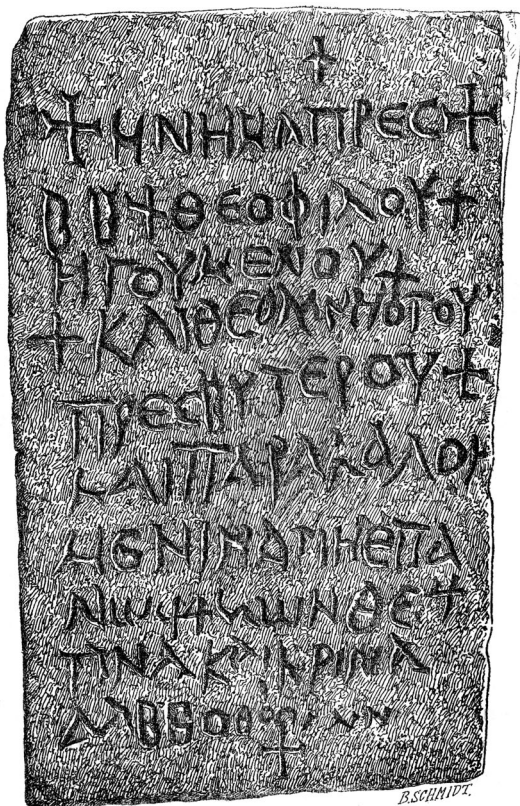 +
+ ΜΝΗΜΑ ΠΡΕС +
ΒΒ + ΘΕΟΦΙΛΟΥ +
ΗΓΟΥΜΕΝΟΥ +
+ ΚΑΙ ΘΕΟΜΝΗΟΤΟΥ
ΠΡΕСΗΥΤΕΡΟΥ +
ΚΑΙ ΠΑΡΑΚΑΛΟΥ
ΜΕΝ ΙΝΑ ΜΗ ΕΠΑ
ΘΕ +
ΤΙΝΑ ΚΑΙ ΚΡΙΜΑ
+
B. SCHMIDT.